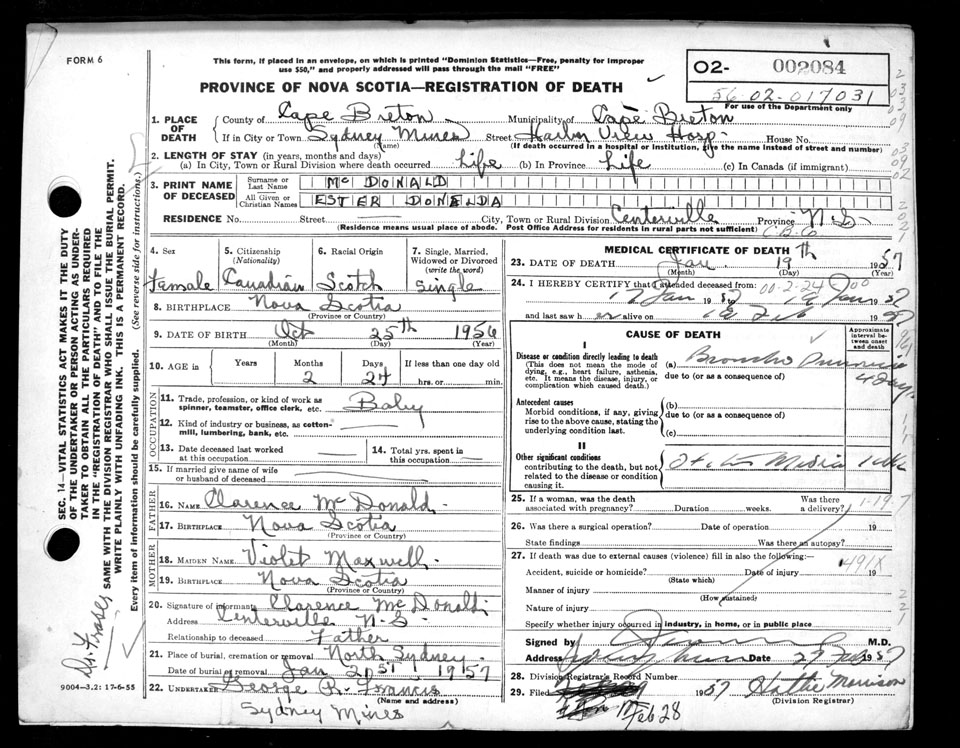 FORM 6
This form, if placed in an envelope, on which is printed "Dominion Statistics—Free, penalty for improper
use $50," and properly addressed will pass through the mail "FREE"
PROVINCE OF NOVA SCOTIA—REGISTRATION OF DEATH
02- 002084
56-02-017031
For use of the Department only
1. PLACE OF DEATH
County of Cape Breton Municipality of Cape Breton
If in City or Town Sydney Mines Street Harbor View Hosp. House No.
(Name) (If death occurred in a hospital or institution, give the name instead of street and number)
2. LENGTH OF STAY (in years, months and days)
(a) In City, Town or Rural Division where death occurred Life (b) In Province Life (c) In Canada (if immigrant)
3. PRINT NAME OF DECEASED
Surname or Last Name McDONALD
All Given or Christian Names ESTER DONELDA
RESIDENCE No. Street City, Town or Rural Division Centerville Province N.S.
(Residence means usual place of abode. Post Office Address for residents in rural parts not sufficient) C.B.Co
4. Sex Female
5. Citizenship (Nationality) Canadian
6. Racial Origin Scotch
7. Single, Married, Widowed or Divorced (write the word) Single
8. BIRTHPLACE Nova Scotia
(Province or Country)
9. DATE OF BIRTH Oct 25th 1956
(Month) (Day) (Year)
10. AGE in Years Months 2 Days 24 If less than one day old hrs. or min.
OCCUPATION
11. Trade, profession, or kind of work as spinner, teamster, office clerk, etc. Baby
12. Kind of industry or business, as cotton-mill, lumbering, bank, etc.
13. Date deceased last worked at this occupation
14. Total yrs. spent in this occupation
15. If married give name of wife or husband of deceased
FATHER
16. NAME Clarence McDonald
17. BIRTHPLACE Nova Scotia
(Province or Country)
MOTHER
18. MAIDEN NAME Violet Maxwell
19. BIRTHPLACE Nova Scotia
(Province or Country)
20. Signature of informant Clarence McDonald
Address Centerville N.S.
Relationship to deceased Father
21. Place of burial, cremation or removal North Sydney
Date of burial or removal Jan 21st 1957
22. UNDERTAKER George R. Francis
(Name and address)
Sydney Mines
MEDICAL CERTIFICATE OF DEATH
23. DATE OF DEATH Jan. 19th 1957
(Month) (Day) (Year)
24. I HEREBY CERTIFY that I attended deceased from: 00-2-24
Jan 19 57
and last saw h er alive on 18 Feb 19
CAUSE OF DEATH
Approximate interval between onset and death
I
Disease or condition directly leading to death
(This does not mean the mode of dying, e.g., heart failure, asthenia, etc. It means the disease, injury, or complication which caused death)
(a) Broncho Pneumonia 4 days
due to (or as a consequence of)
Antecedent causes
Morbid conditions, if any, giving rise to the above cause, stating the underlying condition last.
(b)
due to (or as a consequence of)
(c)
II
Other significant conditions
contributing to the death, but not related to the disease or condition causing it.
Otitis Media 1 wk
25. If a woman, was the death associated with pregnancy? Duration weeks. Was there a delivery?
1-19-7
26. Was there a surgical operation? Date of operation 19
State findings Was there an autopsy?
27. If death was due to external causes (violence) fill in also the following:—
Accident, suicide or homicide? Date of injury 19
491X
(State which)
Manner of injury
(How sustained)
Nature of injury
Specify whether injury occurred in industry, in home, or in public place
Signed by M.D.
Address Date 27 Feb 1957
28. Division Registrar's Record No.
29. Filed 1957 Hattie Morrison
(Division Registrar)
Feb 28
SEC. 14—VITAL STATISTICS ACT MAKES IT THE DUTY
OF THE UNDERTAKER OR PERSON ACTING AS UNDER-
TAKER TO OBTAIN ALL THE PARTICULARS REQUIRED
IN THE "REGISTRATION OF DEATH" AND TO FILE THE
SAME WITH THE DIVISION REGISTRAR WHO SHALL ISSUE THE BURIAL PERMIT.
WRITE PLAINLY WITH UNFADING INK. THIS IS A PERMANENT RECORD.
Every item of information should be carefully supplied. (See reverse side for instructions.)
Dr. Fraser
9004—3.2: 17-6-55